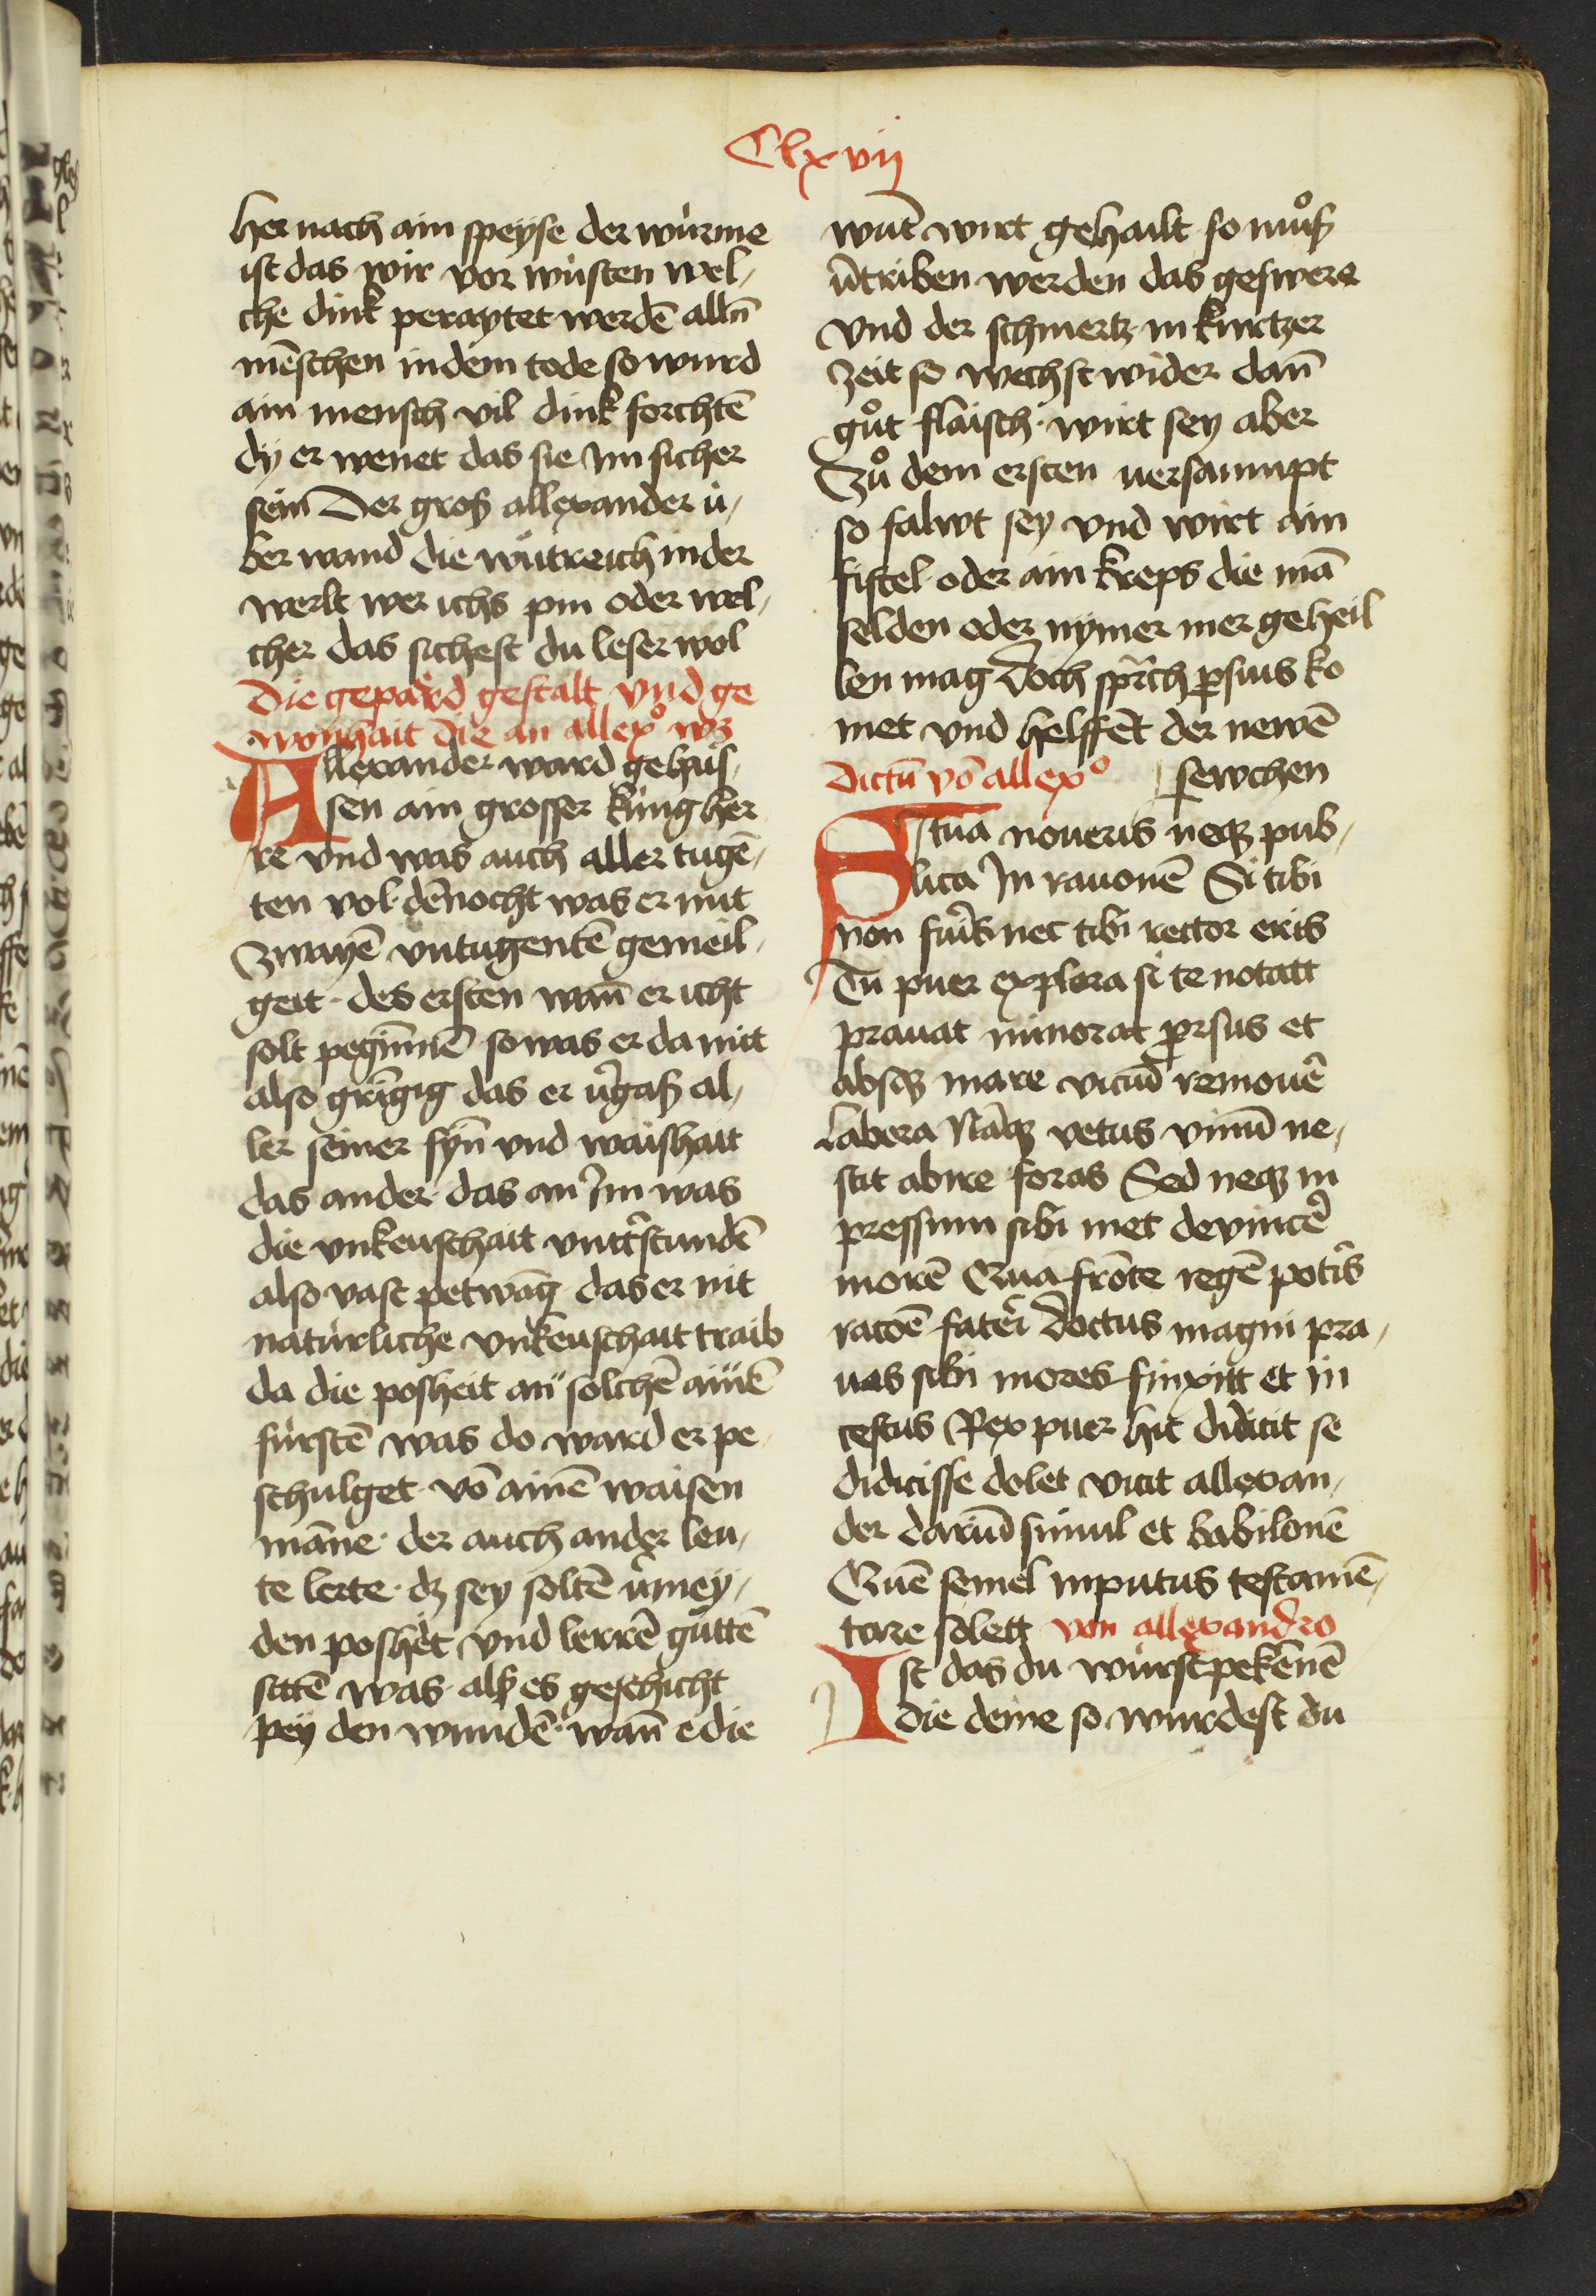 Clxvij
her nach ain speyse der würme
ist das wir vor wüsten wel,
che dink peraytet werdē alln̄
mēschen in dem tode so wurd
ain mensch vil dink forchtē
dy er wenet das sie im sicher
sein Der groß allexander ü,
ber wand die wütreich in der
werlt wer ichs pin oder wel,
cher das sichest du leser wol
Die gepärd gestalt vnd ge
wonhait die an allexº wz
Allexander ward gehais,
sen ain grosser küng her
re vnd was auch aller tugē,
ten vol dēnocht was er mit
zwayē vntugentē gemeil,
geit des ersten wan̄ er icht
solt peginnē so was er da mit
also grīgig das er v̄gaß al,
ler seiner syn̄ vnd waishait
das ander das an Im was
die vnkeuschait vntt̄stundē
also vast petwāg das er nit
natürliche vnkeuschait traib
da die posheit an solchē ainē
fürstē was do ward er pe
schulget vō ainē waisen
māne der auch ander leu,
te lerte dz sey soltē v̄mey,
den poshet vnd lerrē gůttē
sittē was alß es geschicht
pey den wundē wan̄ e die
wūt wirt gehailt so můß
v̄triben werden das geswere
vnd der schmertz in kurtzer
zeit so wechst wider dan̄
gůt flaisch wirt sey aber
zů dem ersten versaumpt
so falwt sey vnd wirt ain
fistel oder ain kreps die mā
selden oder nymer mer geheil
len mag Doch sprīch psius ko
met vnd helffēt der newē
sewchen
dictū vō allexº
Si tua noueris neqz pub,
lica In rauonē Si tibi
non fuīs nec tibi rector eris
Tu puer explora si te notatt
prauat minorat pr̄sus et
absqz mare vicūd remouē
labera Nāqz vetus vinū ne,
scit abire foras Sed neqz in
pressum sibi met devincē
morē Qua frōte regē potīs
racōē fatēi Doctus magni pra,
uas sibi mores finxitt et in
cestus Rex puer hic didicit se
didicisse dolet vicit allexan,
der dariū simul et babilonē
Quē semel inputus testamē,
tare solett von allexandro
Ist das du würst pekēnē
die deine so wurdest du